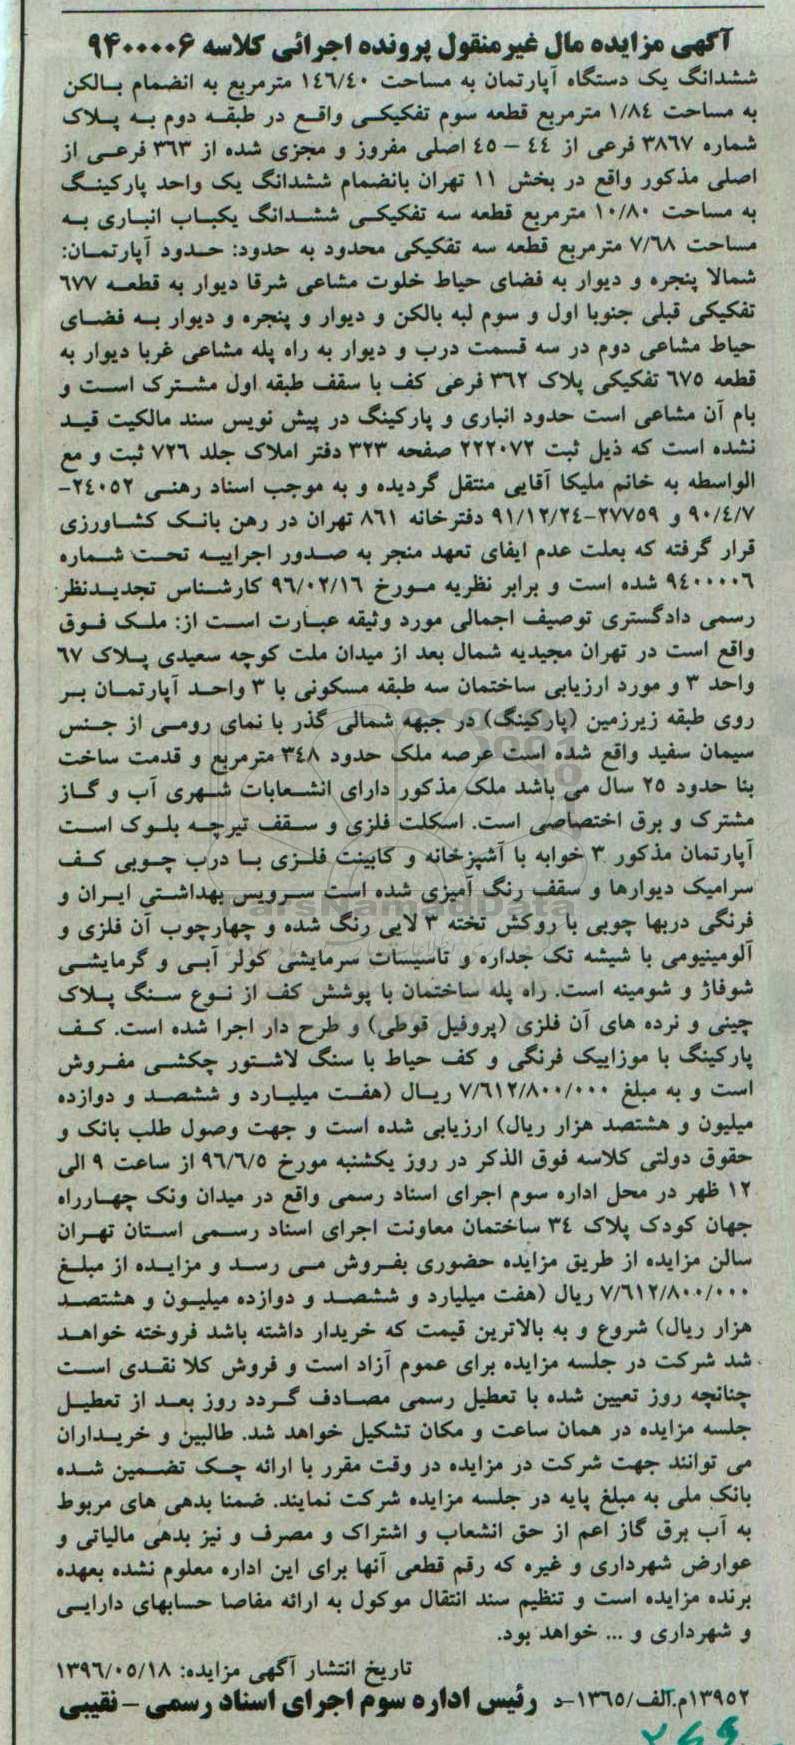 آگهی مزایده مال غیرمنقول پرونده اجرائی کلاسه ۹۴۰۰۰۰۶
ششدانگ یک دستگاه آپارتمان به مساحت ۱۴۶/۴۰ مترمربع به انضمام بالکن
به مساحت ۱/۸۴ مترمربع قطعه سوم تفکیکی واقع در طبقه دوم به پلاک
شماره ۳۸۶۷ فرعی از ۴۴ – ۴۵ اصلی مفروز و مجزی شده از ۳۶۳ فرعی از
اصلی مذکور واقع در بخش ۱۱ تهران بانضمام ششدانگ یک واحد پارکینگ
به مساحت ۱۰/۸۰ مترمربع قطعه سه تفکیکی ششدانگ یکباب انباری به
مساحت ۷/۶۸ مترمربع قطعه سه تفکیکی محدود به حدود: حدود آپارتمان:
شمالا پنجره و دیوار به فضای حیاط خلوت مشاعی شرقا دیوار به قطعه ۶۷۷
تفکیکی قبلی جنوبا اول و سوم لبه بالکن و دیوار و پنجره و دیوار به فضای
حیاط مشاعی دوم در سه قسمت درب و دیوار به راه پله مشاعی غربا دیوار به
قطعه ۶۷۵ تفکیکی پلاک ۳۶۲ فرعی کف با سقف طبقه اول مشترک است و
بام آن مشاعی است حدود انباری و پارکینگ در پیش نویس سند مالکیت قید
نشده است که ذیل ثبت ۲۲۲۰۷۲ صفحه ۳۲۳ دفتر املاک جلد ۷۲۶ ثبت و مع
الواسطه به خانم ملیکا آقایی منتقل گردیده و به موجب اسناد رهنی ۲۴۰۵۲-
۹۰/۴/۷ و ۲۷۷۵۹-۹۱/۱۲/۲۴ دفترخانه ۸۶۱ تهران در رهن بانک کشاورزی
قرار گرفته که بعلت عدم ایفای تعهد منجر به صدور اجراییه تحت شماره
۹۴۰۰۰۰۶ شده است و برابر نظریه مورخ ۹۶/۰۲/۱۶ کارشناس تجدیدنظر
رسمی دادگستری توصیف اجمالی مورد وثیقه عبارت است از: ملک فوق
واقع است در تهران مجیدیه شمال بعد از میدان ملت کوچه سعیدی پلاک ۶۷
واحد ۳ و مورد ارزیابی ساختمان سه طبقه مسکونی با ۳ واحد آپارتمان بر
روی طبقه زیرزمین (پارکینگ) در جبهه شمالی گذر با نمای رومی از جنس
سیمان سفید واقع شده است عرصه ملک حدود ۳۴۸ مترمربع و قدمت ساخت
بنا حدود ۲۵ سال می باشد ملک مذکور دارای انشعابات شهری آب و گاز
مشترک و برق اختصاصی است. اسکلت فلزی و سقف تیرچه بلوک است
آپارتمان مذکور ۳ خوابه با آشپزخانه و کابینت فلزی با درب چوبی کف
سرامیک دیوارها و سقف رنگ آمیزی شده است سرویس بهداشتی ایران و
فرنگی دربها چوبی با روکش تخته ۳ لایی رنگ شده و چهارچوب آن فلزی و
آلومینیومی با شیشه تک جداره و تاسیسات سرمایشی کولر آبی و گرمایشی
شوفاژ و شومینه است. راه پله ساختمان با پوشش کف از نوع سنگ پلاک
چینی و نرده های آن فلزی (پروفیل قوطی) و طرح دار اجرا شده است. کف
پارکینگ با موزاییک فرنگی و کف حیاط با سنگ لاشتور چکشی مفروش
است و به مبلغ ۷/۶۱۲/۸۰۰/۰۰۰ ریال (هفت میلیارد و ششصد و دوازده
میلیون و هشتصد هزار ریال) ارزیابی شده است و جهت وصول طلب بانک و
حقوق دولتی کلاسه فوق الذکر در روز یکشنبه مورخ ۹۶/۶/۵ از ساعت ۹ الی
۱۲ ظهر در محل اداره سوم اجرای اسناد رسمی واقع در میدان ونک چهارراه
جهان کودک پلاک ۳۴ ساختمان معاونت اجرای اسناد رسمی استان تهران
سالن مزایده از طریق مزایده حضوری بفروش می رسد و مزایده از مبلغ
۷/۶۱۲/۸۰۰/۰۰۰ ریال (هفت میلیارد و ششصد و دوازده میلیون و هشتصد
هزار ریال) شروع و به بالاترین قیمت که خریدار داشته باشد فروخته خواهد
شد شرکت در جلسه مزایده برای عموم آزاد است و فروش کلا نقدی است
چنانچه روز تعیین شده با تعطیل رسمی مصادف گردد روز بعد از تعطیل
جلسه مزایده در همان ساعت و مکان تشکیل خواهد شد. طالبین و خریداران
می توانند جهت شرکت در مزایده در وقت مقرر با ارائه چک تضمین شده
بانک ملی به مبلغ پایه در جلسه مزایده شرکت نمایند. ضمنا بدهی های مربوط
به آب برق گاز اعم از حق انشعاب و اشتراک و مصرف و نیز بدهی مالیاتی و
عوارض شهرداری و غیره که رقم قطعی آنها برای این اداره معلوم نشده بعهده
برنده مزایده است و تنظیم سند انتقال موکول به ارائه مفاصا حسابهای دارایی
و شهرداری و ... خواهد بود.
تاریخ انتشار آگهی مزایده: ۱۳۹۶/۰۵/۱۸
۱۳۹۵۲م.آلف/۱۳۶۵-د رئیس اداره سوم اجرای اسناد رسمی – نقیبی